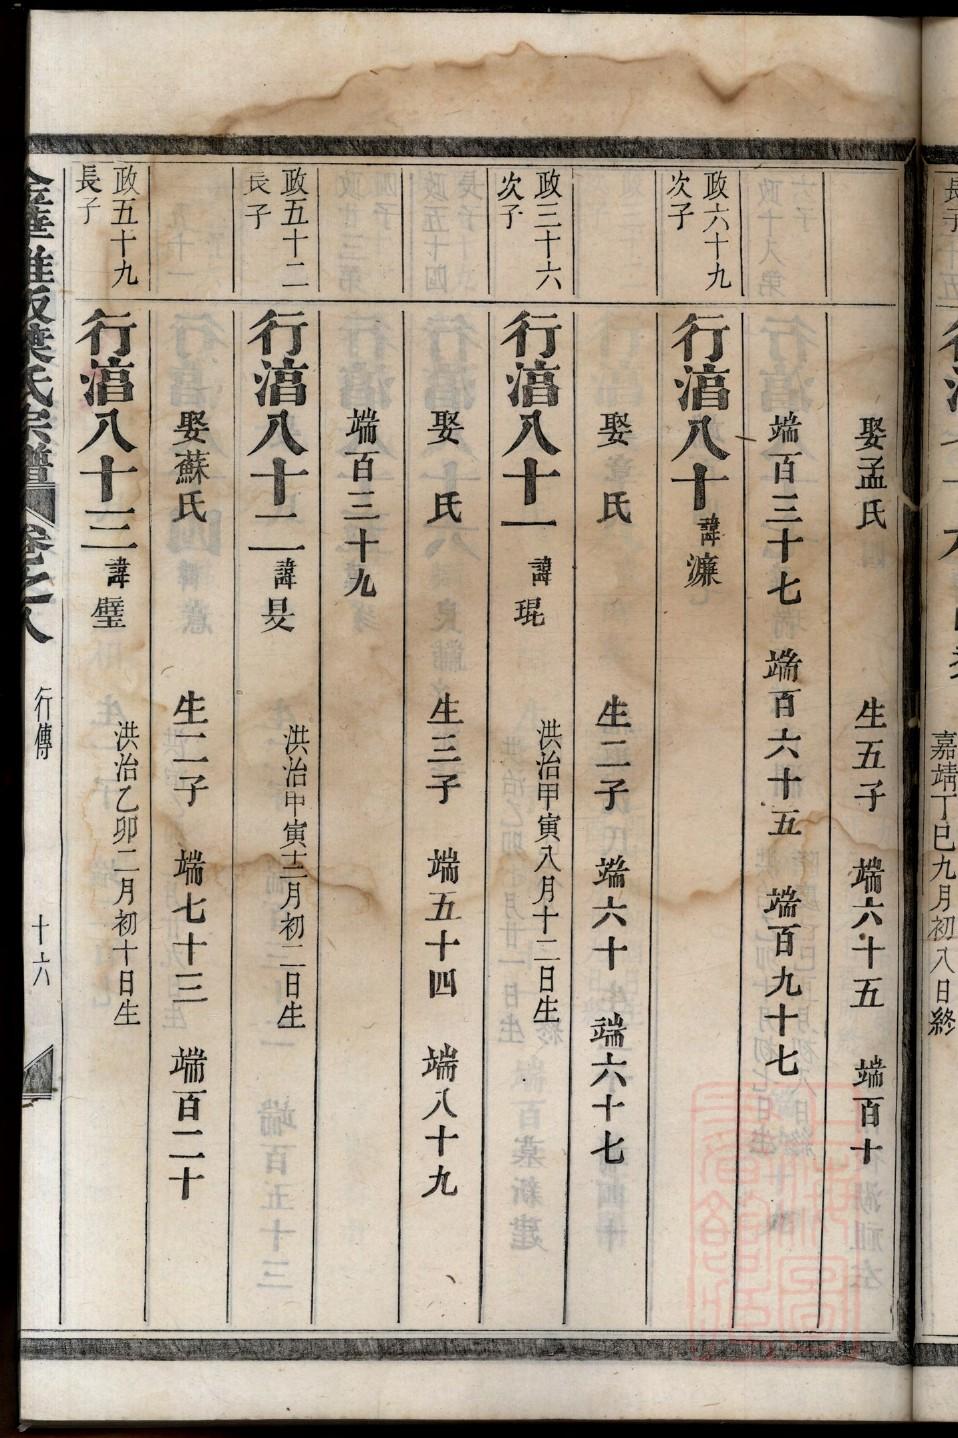 嘉靖丁巳九月初八日終
娶孟氏 生五子 端六十五 端百十
端百三十七 端百六十五 端百九十七
政六十九
次子
行湻八十 諱濂
娶 氏 生二子 端六十 端六十七
政三十六
次子
行湻八十一 諱琨 洪治甲寅八月十二日生
娶 氏 生三子 端五十四 端八十九
端百三十九
政五十二
長子
行湻八十二 諱旻 洪治甲寅十二月初二日生
娶蘇氏 生二子 端七十三 端百二十
政五十九
長子
行湻八十三 諱璧 洪治乙卯二月初十日生
氏宗譜 卷之八 行傳 十六